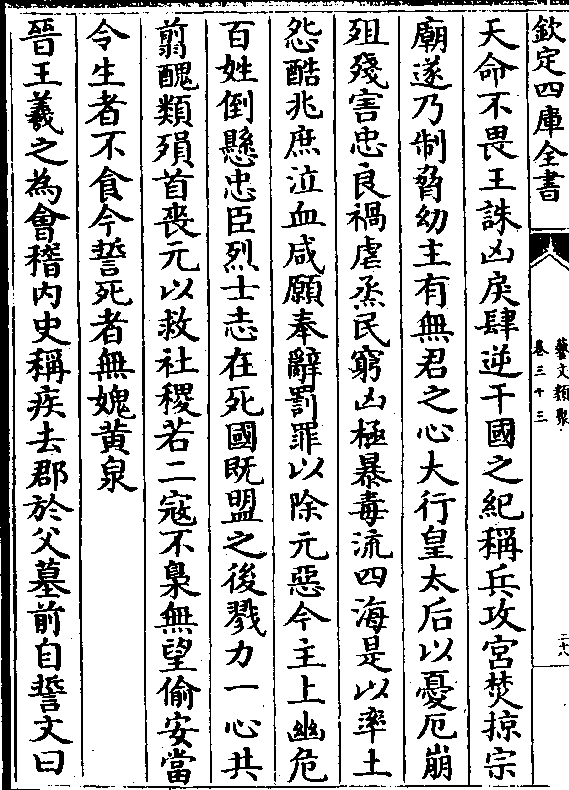 欽定四庫全書
藝文類聚
卷三十三
二六
天命不畏王誅凶戾肆逆干國之紀稱兵攻宮焚掠宗
廟遂乃制脅幼主有無君之心大行皇太后以憂厄崩
殂殘害忠良禍虐烝民窮凶極暴毒流四海是以率土
怨酷兆庶泣血咸願奉辭罰罪以除元惡今主上幽危
百姓倒懸忠臣烈士志在死國既盟之後戮力一心共
翦醜類殞首喪元以救社稷若二寇不梟無望偷安當
令生者不食今誓死者無媿黃泉
晉王羲之為會稽内史稱疾去郡於父墓前自誓文曰